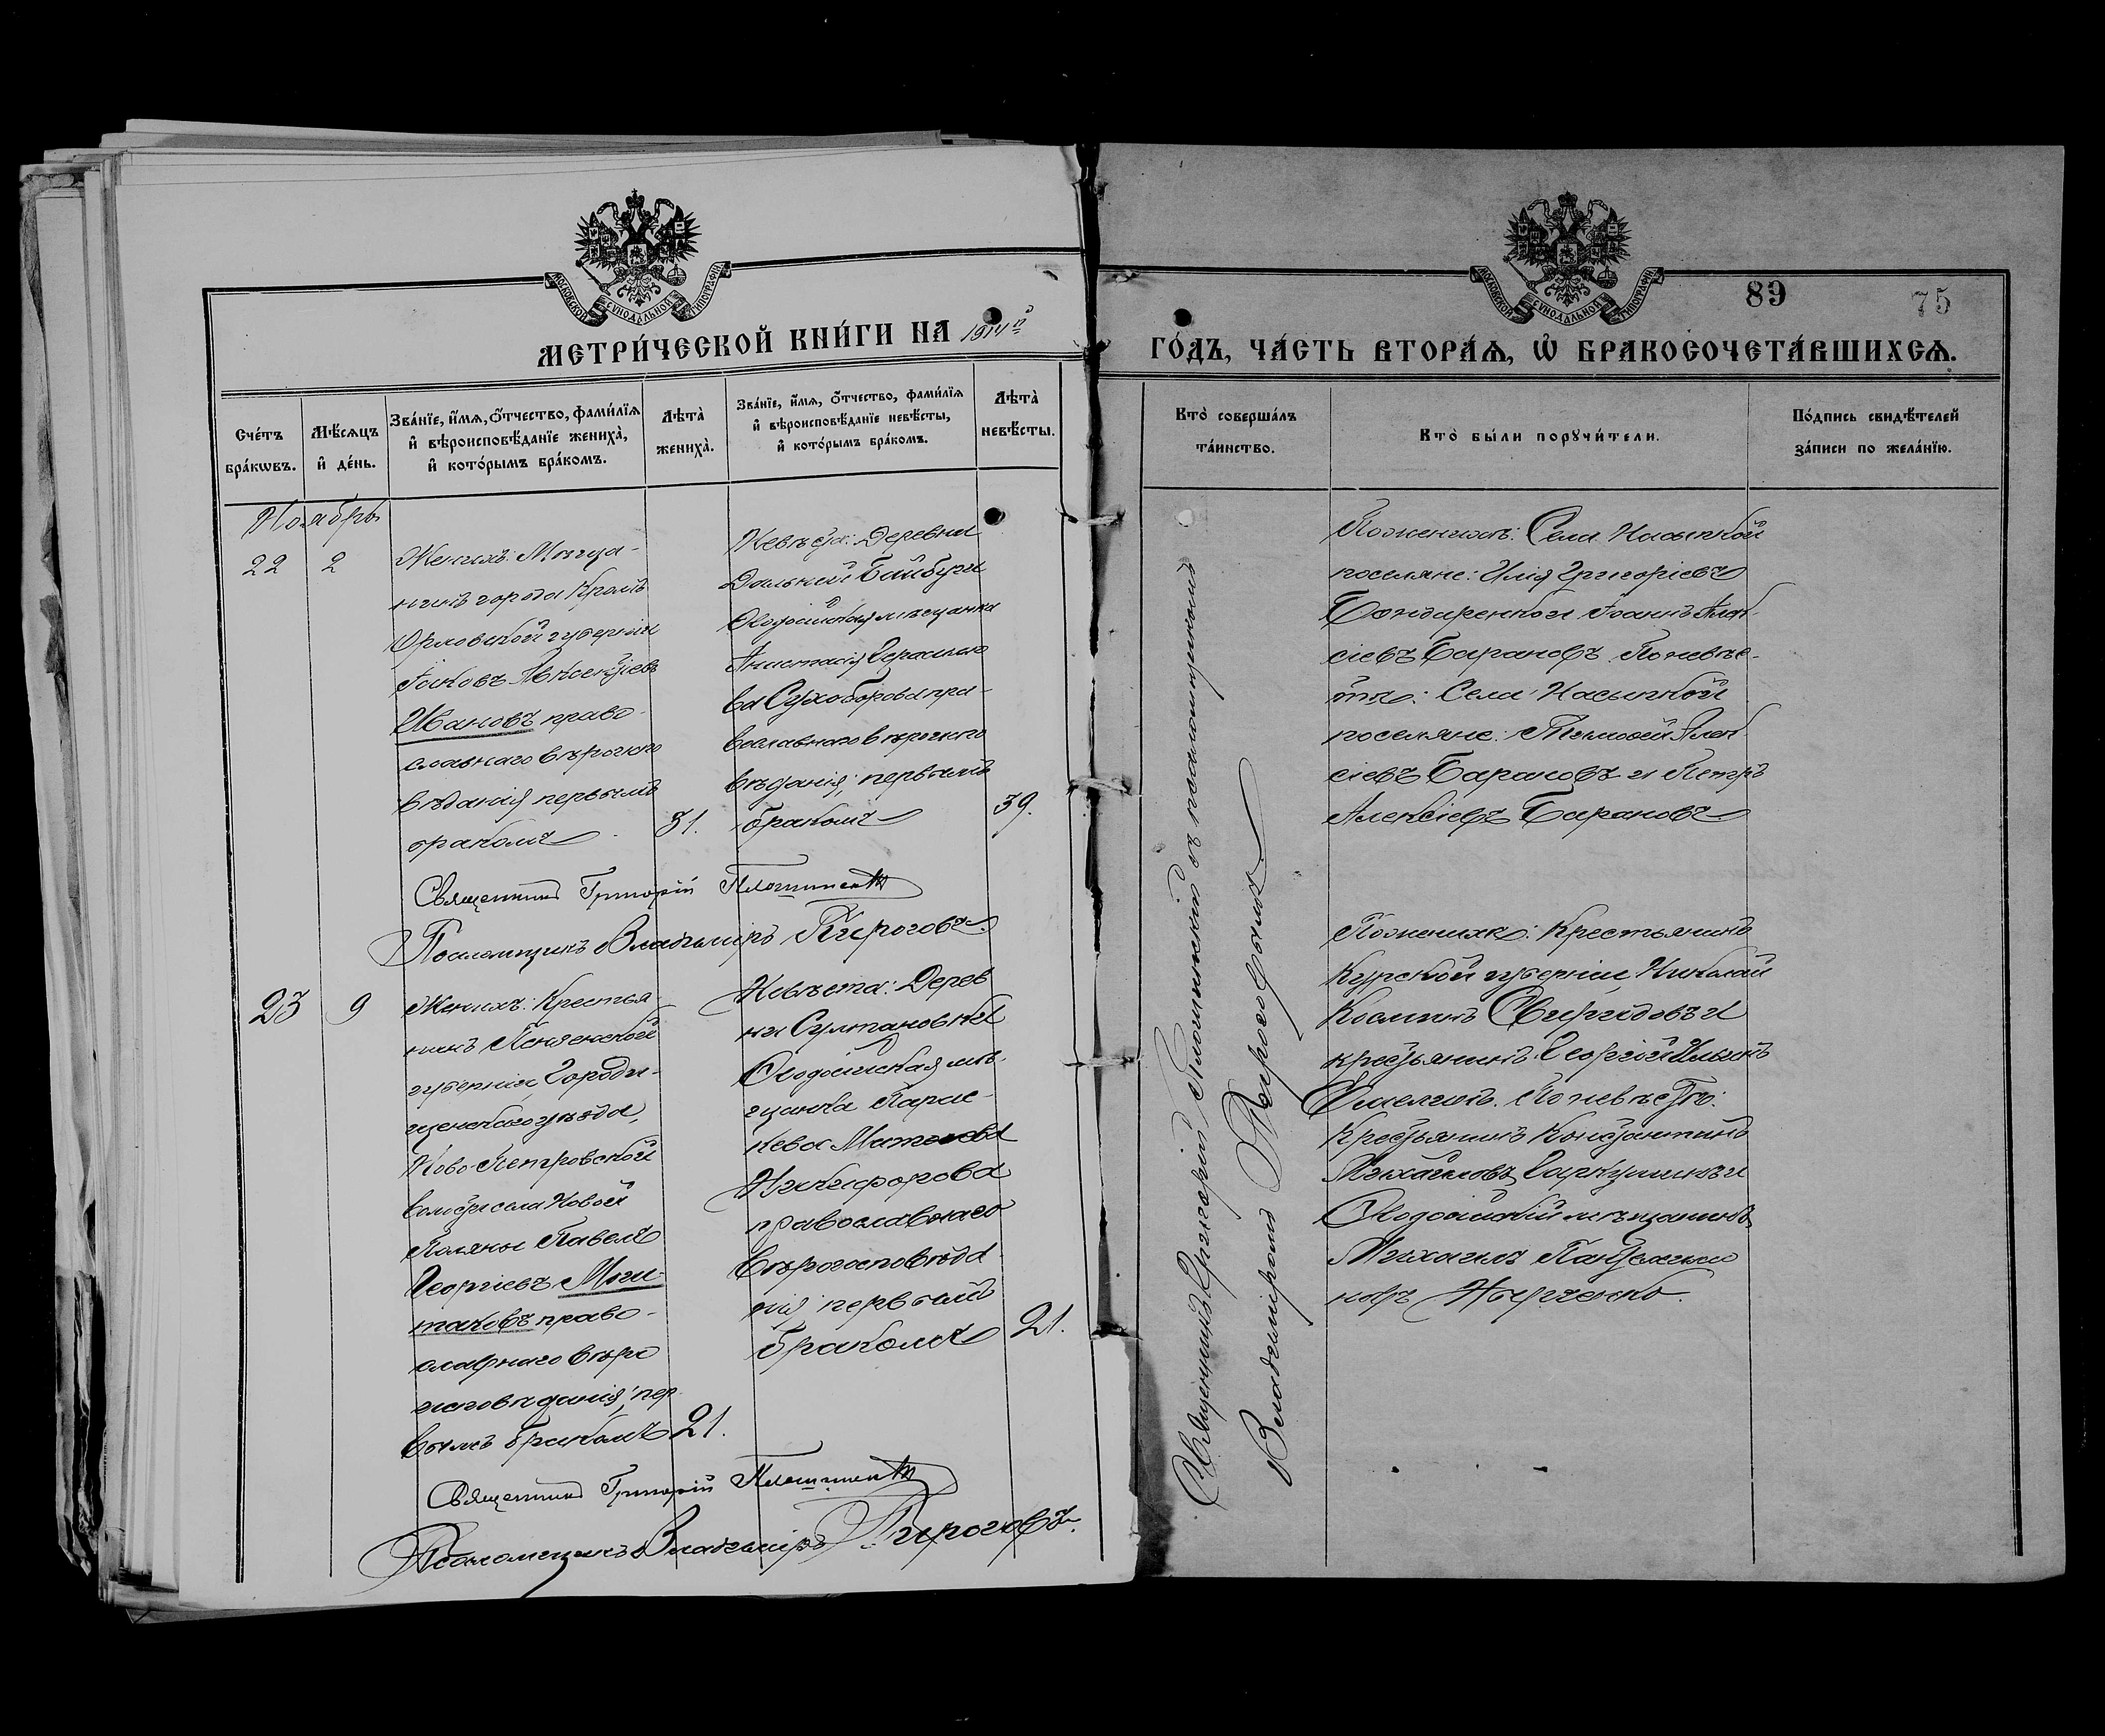 МОСКОВСКОЙ СѴНОДАЛЬНОЙ ТИПОГРАФІИ
МЕТРИ́ЧЕСКОЙ КНИ́ГИ НА 1914й
Сче́тъ бра́кѡвъ.
Мѣ́сѧцъ и҆ де́нь.
Зва́нїе, и҆́мѧ, ѻ҆́тчество, фами́лїѧ
и҆ вѣроисповѣ́данїе жениха̀,
и҆ кото́рымъ бра́комъ.
Лѣ́та жениха̀.
Зва́нїе, и҆́мѧ, ѻ҆́тчество, фами́лїѧ
и҆ вѣроисповѣ́данїе невѣ́сты,
и҆ кото́рымъ бра́комъ.
Лѣ́та невѣ́сты.
Ноябрь
22 2
Женихъ: Мѣща-
нинъ города Кромъ
Орловской губерніи
Іаковъ Алексѣевъ
Ивановъ право-
славнаго вѣроиспо
вѣданія первымъ
бракомъ
31.
Невѣста: Деревни
Дальней Байбуги
Ѳеодосійская мѣщанка
Анастасія Герасимо
ва Сухоборова пра-
вославнаго вѣроиспо
вѣданія, первымъ
бракомъ
39.
Священникъ Григорій
Псаломщикъ Владиміръ Пироговъ.
23 9
Женихъ: Крестья
нинъ Пензенской
губерніи, Городи-
щенскаго уѣзда,
Ново-Петровской
волости села Новой
Поляны Павелъ
Георгіевъ
православнаго вѣро
исповѣданія, пер
вымъ бракомъ
21.
Невѣста: Дерев
ни Султановки
Ѳеодосійская мѣ
щанка Парас-
кева
Никифорова
православнаго
вѣроисповѣда
нія, первымъ
бракомъ
21.
Священникъ Григорій
Псаломщикъ Владиміръ Пироговъ.
МОСКОВСКОЙ СѴНОДАЛЬНОЙ ТИПОГРАФІИ
89
75
ГО́ДЪ, ЧА́СТЬ ВТОРА́Ѧ, Ѡ҆ БРАКОСОЧЕТА́ВШИХСѦ.
Кто̀ соверша́лъ та́инство.
Кто̀ бы́ли порꙋчи́тели.
По́дпись свидѣ́телей
за́писи по жела́нїю.
Священникъ Григорій съ псаломщикомъ
Владиміромъ Пироговымъ
По женихѣ: Села Насыпкой
поселяне: Илія Григоріевъ
Бондаренко и Іоаннъ Алек
сіевъ Барановъ. По невѣс-
тѣ: Села Насыпкой
поселяне: Тимофей Алек
сіевъ Барановъ и Петръ
Алексіевъ Барановъ
По женихѣ: Крестьянинъ
Курской губерніи, Николай
Косминъ Свиридовъ и
крестьянинъ Георгій Ильинъ
По невѣстѣ:
Крестьянинъ Константинъ
Михайловъ и
Ѳеодосійскій мѣщанинъ
Михаилъ Пантелеимо
новъ